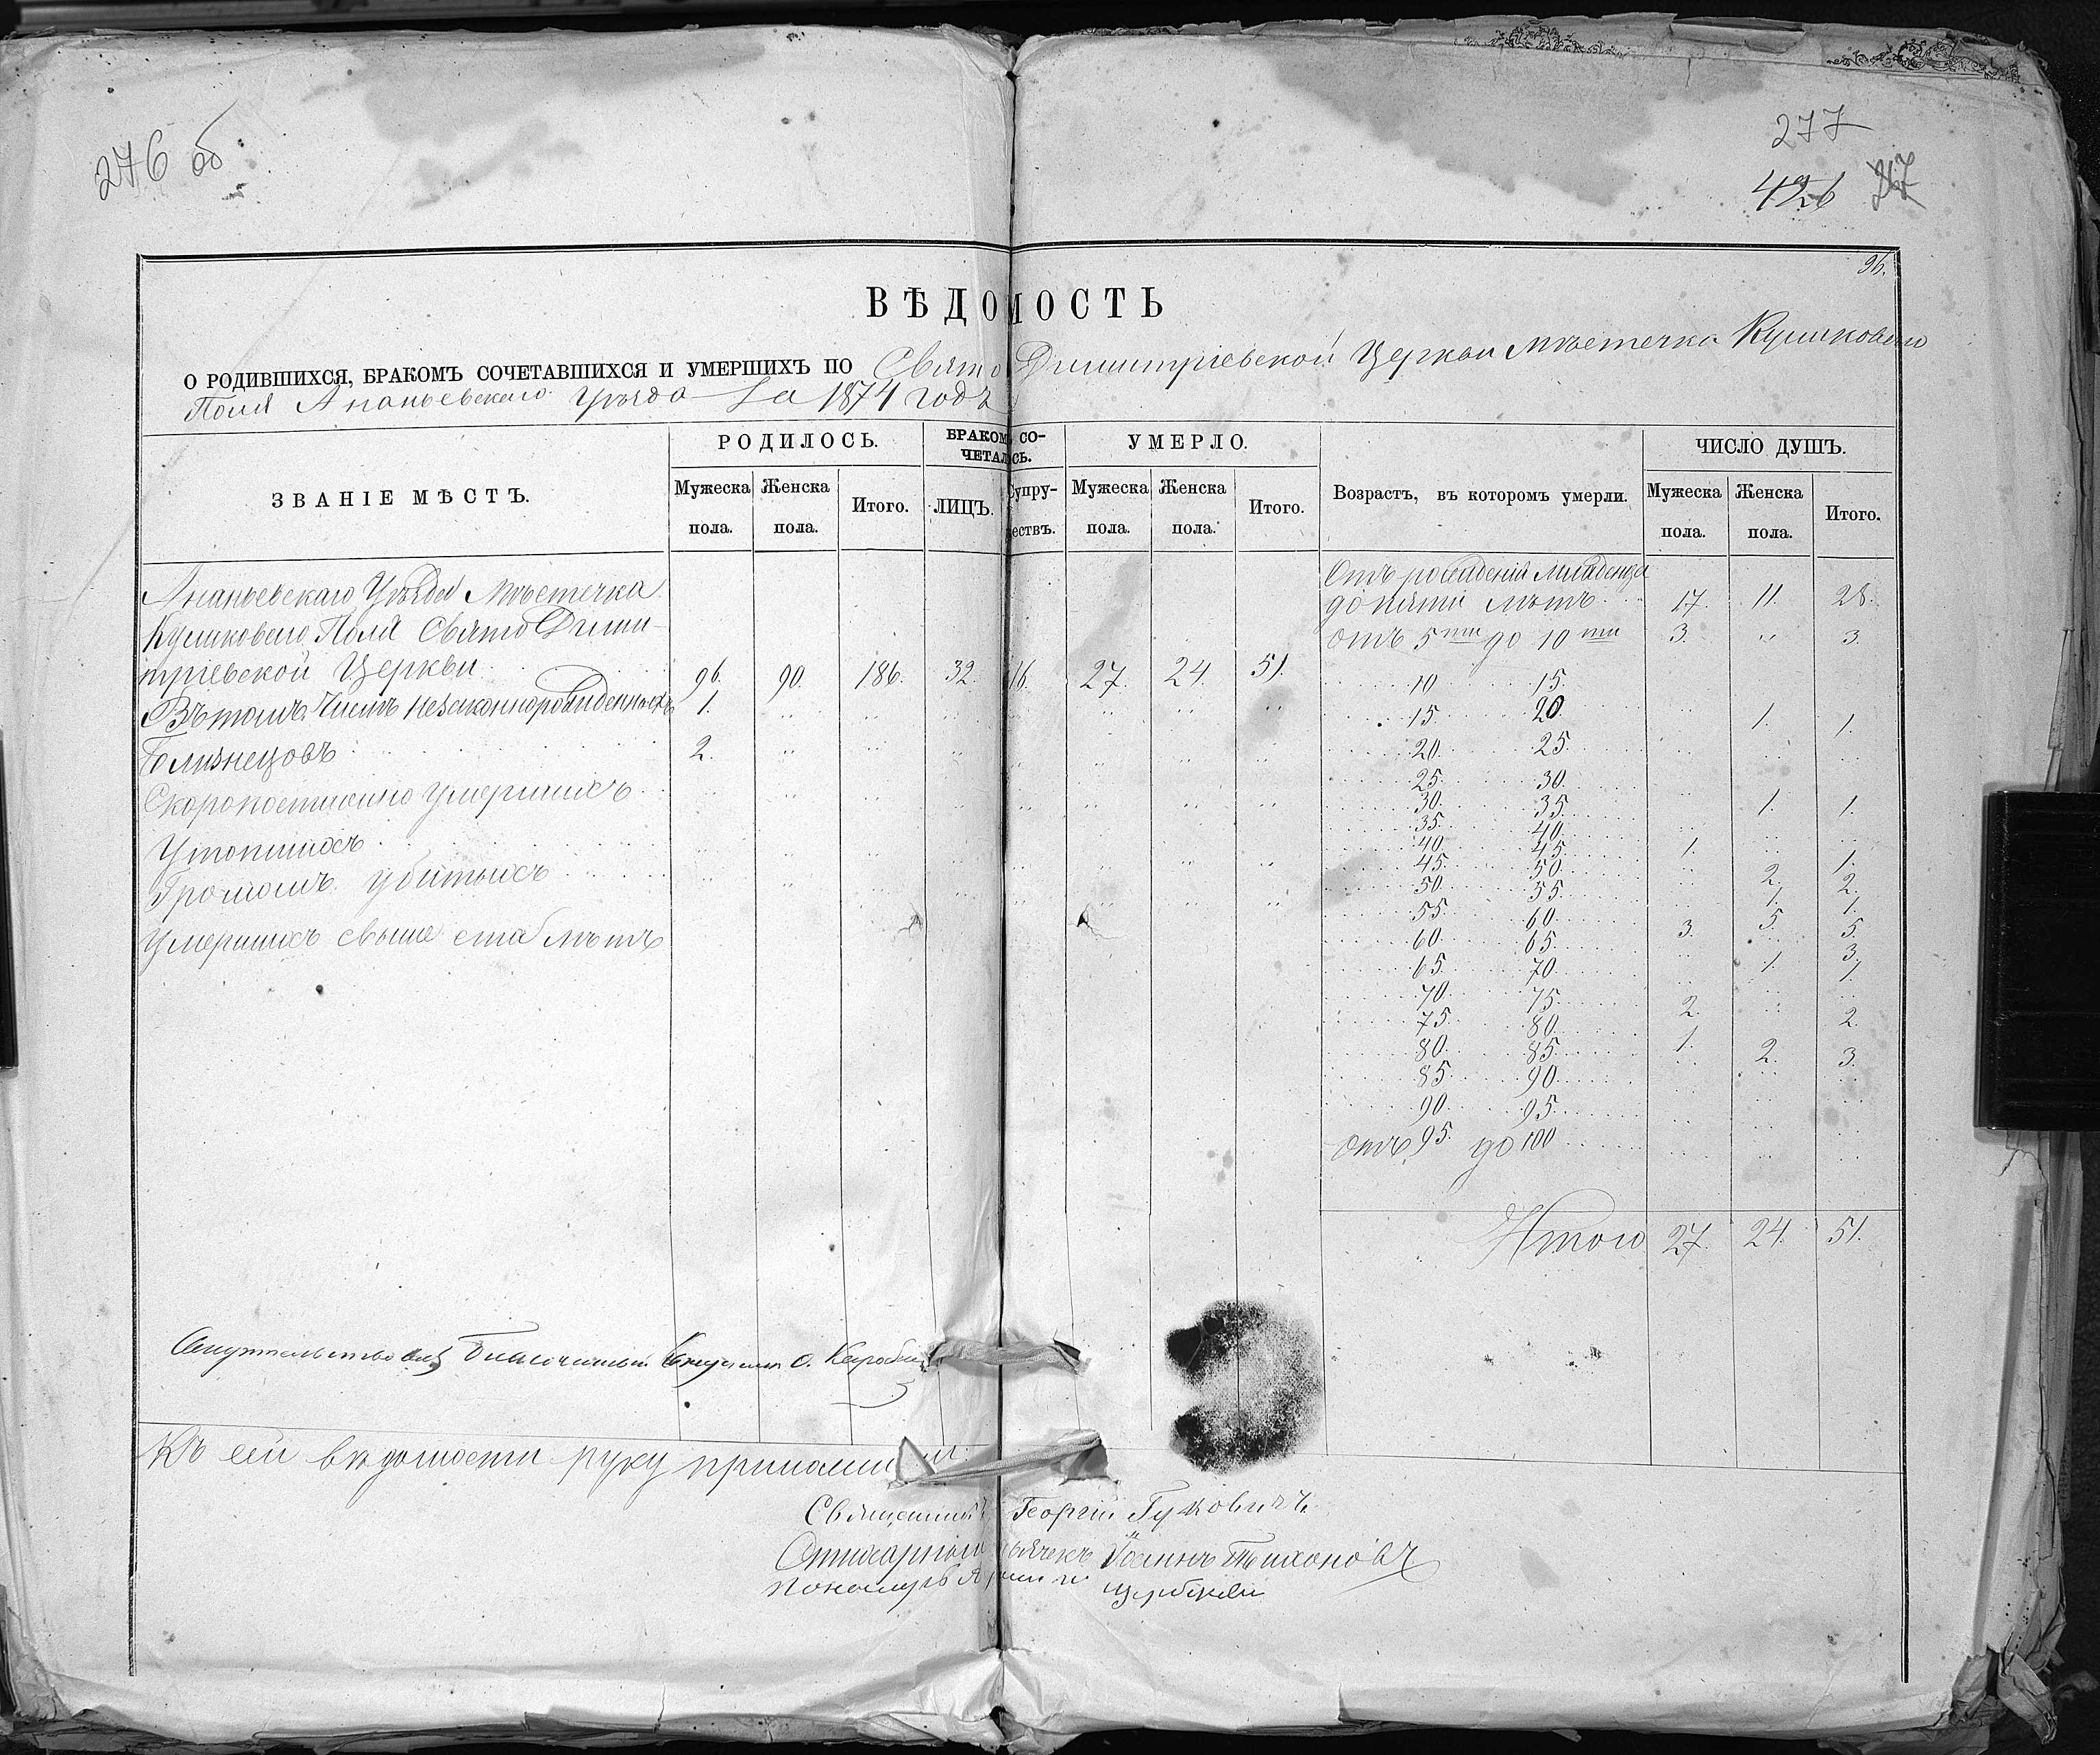 276 об
277
426
96.
ВѢДОМОСТЬ
О РОДИВШИХСЯ, БРАКОМЪ СОЧЕТАВШИХСЯ И УМЕРШИХЪ ПО Свято Димитріевской Церкви мѣстечка Куликоваго
Поля Ананьевскаго уѣзда за 1874 годъ
ЗВАНІЕ МѢСТЪ. РОДИЛОСЬ. БРАКОМЪ СО- УМЕРЛО. Возрастъ, въ которомъ умерли. ЧИСЛО ДУШЪ.
ЧЕТАЛОСЬ.
Мужеска Женска Итого. ЛИЦЪ. Супру- Мужеска Женска Итого. Мужеска Женска Итого.
пола. пола. жествъ. пола. пола. пола. пола.
Ананьевскаго Уѣзда Мѣстечка
Куликоваго Поля Свято Дими-
тріевской Церкви 96. 90. 186. 32. 16. 27. 24. 51.
Въ томъ числѣ незаконнорожденныхъ 1.
Близнецовъ 2.
Скоропостижно умершихъ
Утопшихъ
Громомъ убитыхъ
Умершихъ свыше ста лѣтъ
Отъ рожденія младенца
до пяти лѣтъ 17. 11. 28.
отъ 5ти до 10ти 3. 3.
10 15.
15 20. 1. 1.
20. 25.
25. 30.
30. 35. 1. 1.
35. 40.
40. 45. 1. 1.
45. 50. 2. 2.
50. 55. 1. 1.
55. 60. 5. 5.
60. 65. 3. 3.
65. 70. 1. 1
70. 75.
75. 80. 2. 2.
80. 85. 1. 2. 3.
85. 90.
90. 95.
отъ 95. до 100
Итого 27. 24. 51.
Благочинный
Къ сей вѣдомости руку приложили:
Священникъ Георгій Гуковичъ
Іоаннъ Тихоновъ
Пономарь